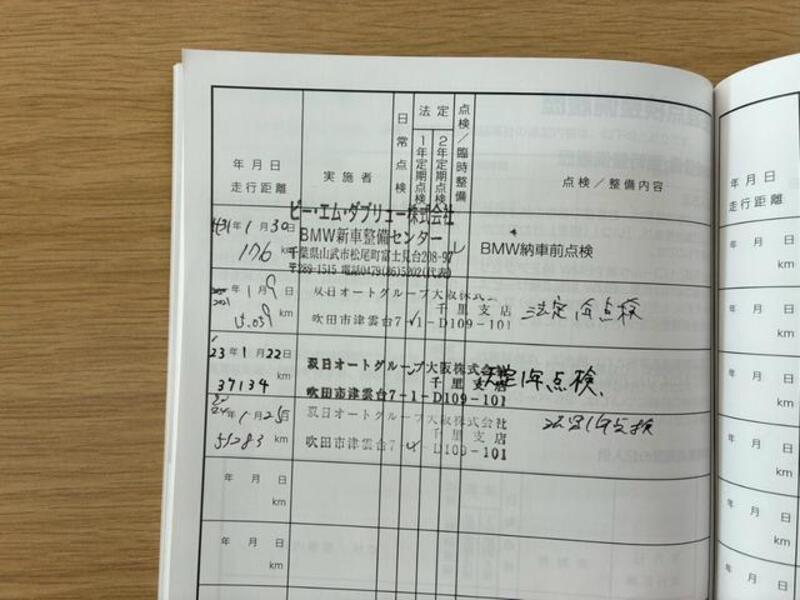 年月日
走行距離
実施者
日常点検
法定
1年定期点検
2年定期点検
点検/臨時整備
点検/整備内容
H31年1月30日
176 km
ビー・エム・ダブリュー株式会社
BMW新車整備センター
千葉県山武市松尾町富士見台208-97
〒289-1515 電話0479(86)5202(代表)
レ
BMW納車前点検
2021年1月9日
km
双日オートグループ大阪株式会社
千里支店
吹田市津雲台7-1-D109-101
法定 点検
23年1月22日
37134 km
双日オートグループ大阪株式会社
千里支店
吹田市津雲台7-1-D109-101
法定1年点検.
年1月25日
51283 km
双日オートグループ大阪株式会社
千里支店
吹田市津雲台7-1-D109-101
法定1年点検
年 月 日
km
年 月 日
km
年 月 日
年月日
走行距離
年 月 日
km
年 月 日
km
年 月 日
km
年 月 日
km
年 月 日
km
年 月 日
km